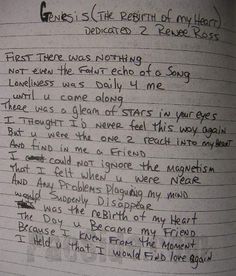 Genesis (The Rebirth of my Heart)
Dedicated 2 Renee Ross
First there was nothing
Not even the faint echo of a song
Loneliness was daily 4 me
until u came along
There was a gleam of stars in your eyes
I thought I'd never feel this way again
But u were the one 2 reach into my Heart
And find in me a Friend
I could not ignore the magnetism
That I felt when u were near
And any problems plaguing my mind
would suddenly disappear
was the rebirth of my Heart
The day u became my Friend
Because I knew from the moment
I held u that I would find love again